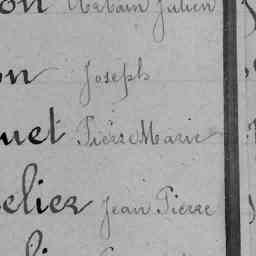 on Urbain Julien
on Joseph
uet Pierre Marie
elier Jean Pierre